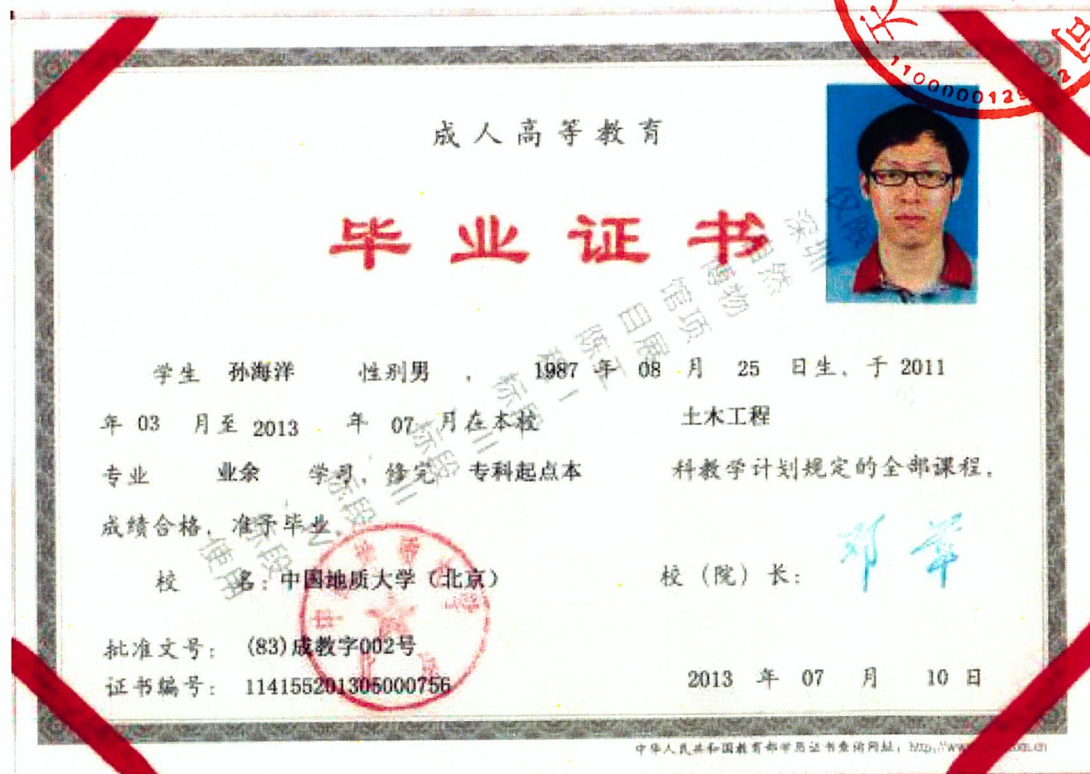 成人高等教育
毕业证书
学生 孙海洋 性别男 , 1987 年 08 月 25 日生、于 2011
年 03 月至 2013 年 07 月在本校 土木工程
专业 业余 学习，修完 专科起点本 科教学计划规定的全部课程，
成绩合格，准予毕业。
校 名：中国地质大学（北京） 校（院）长： 邓军
批准文号： (83)成教字002号
证书编号： 114155201305000756 2013 年 07 月 10 日
中华人民共和国教育部学历证书查询网址：http://www
仅限深圳自然博物馆项目展陈工程 I 标段、II 标段、III 标段、IV 标段使用